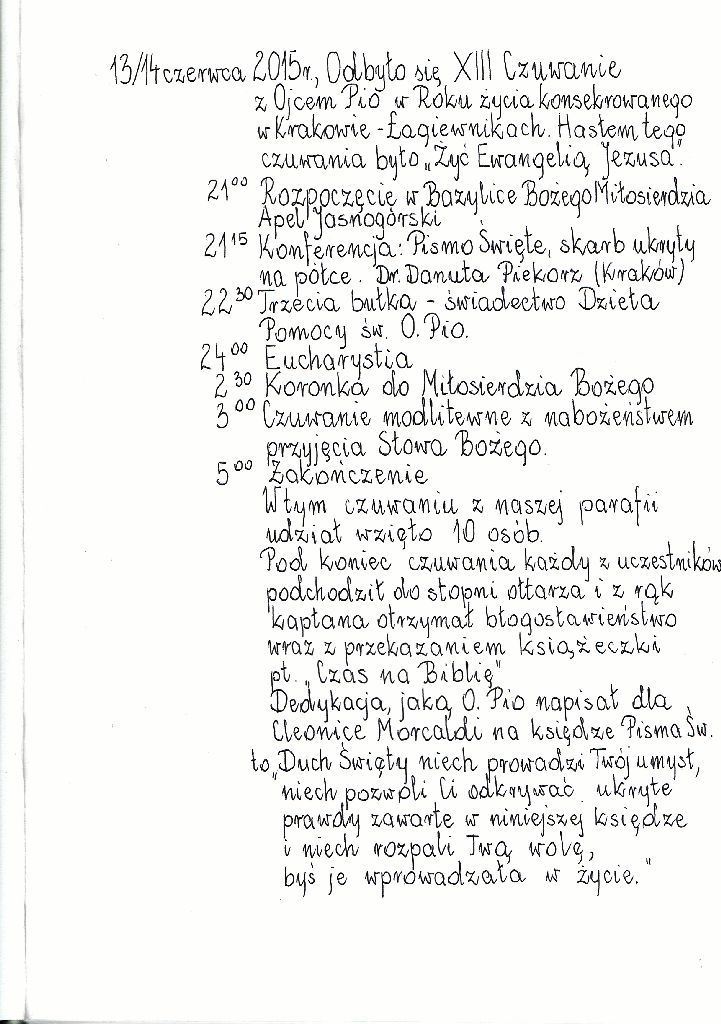 13/14 czerwca 2015r., Odbyło się XIII Czuwanie
z Ojcem Pio w Roku życia konsekrowanego
w Krakowie - Łagiewnikach. Hasłem tego
czuwania było „Żyć Ewangelią Jezusa".
21⁰⁰ Rozpoczęcie w Bazylice Bożego Miłosierdzia
Apel Jasnogórski
21¹⁵ Konferencja: Pismo Święte, skarb ukryty
na półce. Dr. Danuta Piekorz (Kraków)
22³⁰ Trzecia bułka - świadectwo Dzieła
Pomocy św. O. Pio.
24⁰⁰ Eucharystia
2³⁰ Koronka do Miłosierdzia Bożego
3⁰⁰ Czuwanie modlitewne z nabożeństwem
przyjęcia Słowa Bożego.
5⁰⁰ Zakończenie
W tym czuwaniu z naszej parafii
udział wzięło 10 osób.
Pod koniec czuwania każdy z uczestników
podchodził do stopni ołtarza i z rąk
kapłana otrzymał błogosławieństwo
wraz z przekazaniem książeczki
pt. „Czas na Biblię"
Dedykacja, jaką O. Pio napisał dla
Cleonice Morcaldi na księdze Pisma Św.
to „Duch Święty niech prowadzi Twój umysł,
niech pozwoli Ci odkrywać ukryte
prawdy zawarte w niniejszej księdze
i niech rozpali Twą wolę,
byś je wprowadzała w życie."